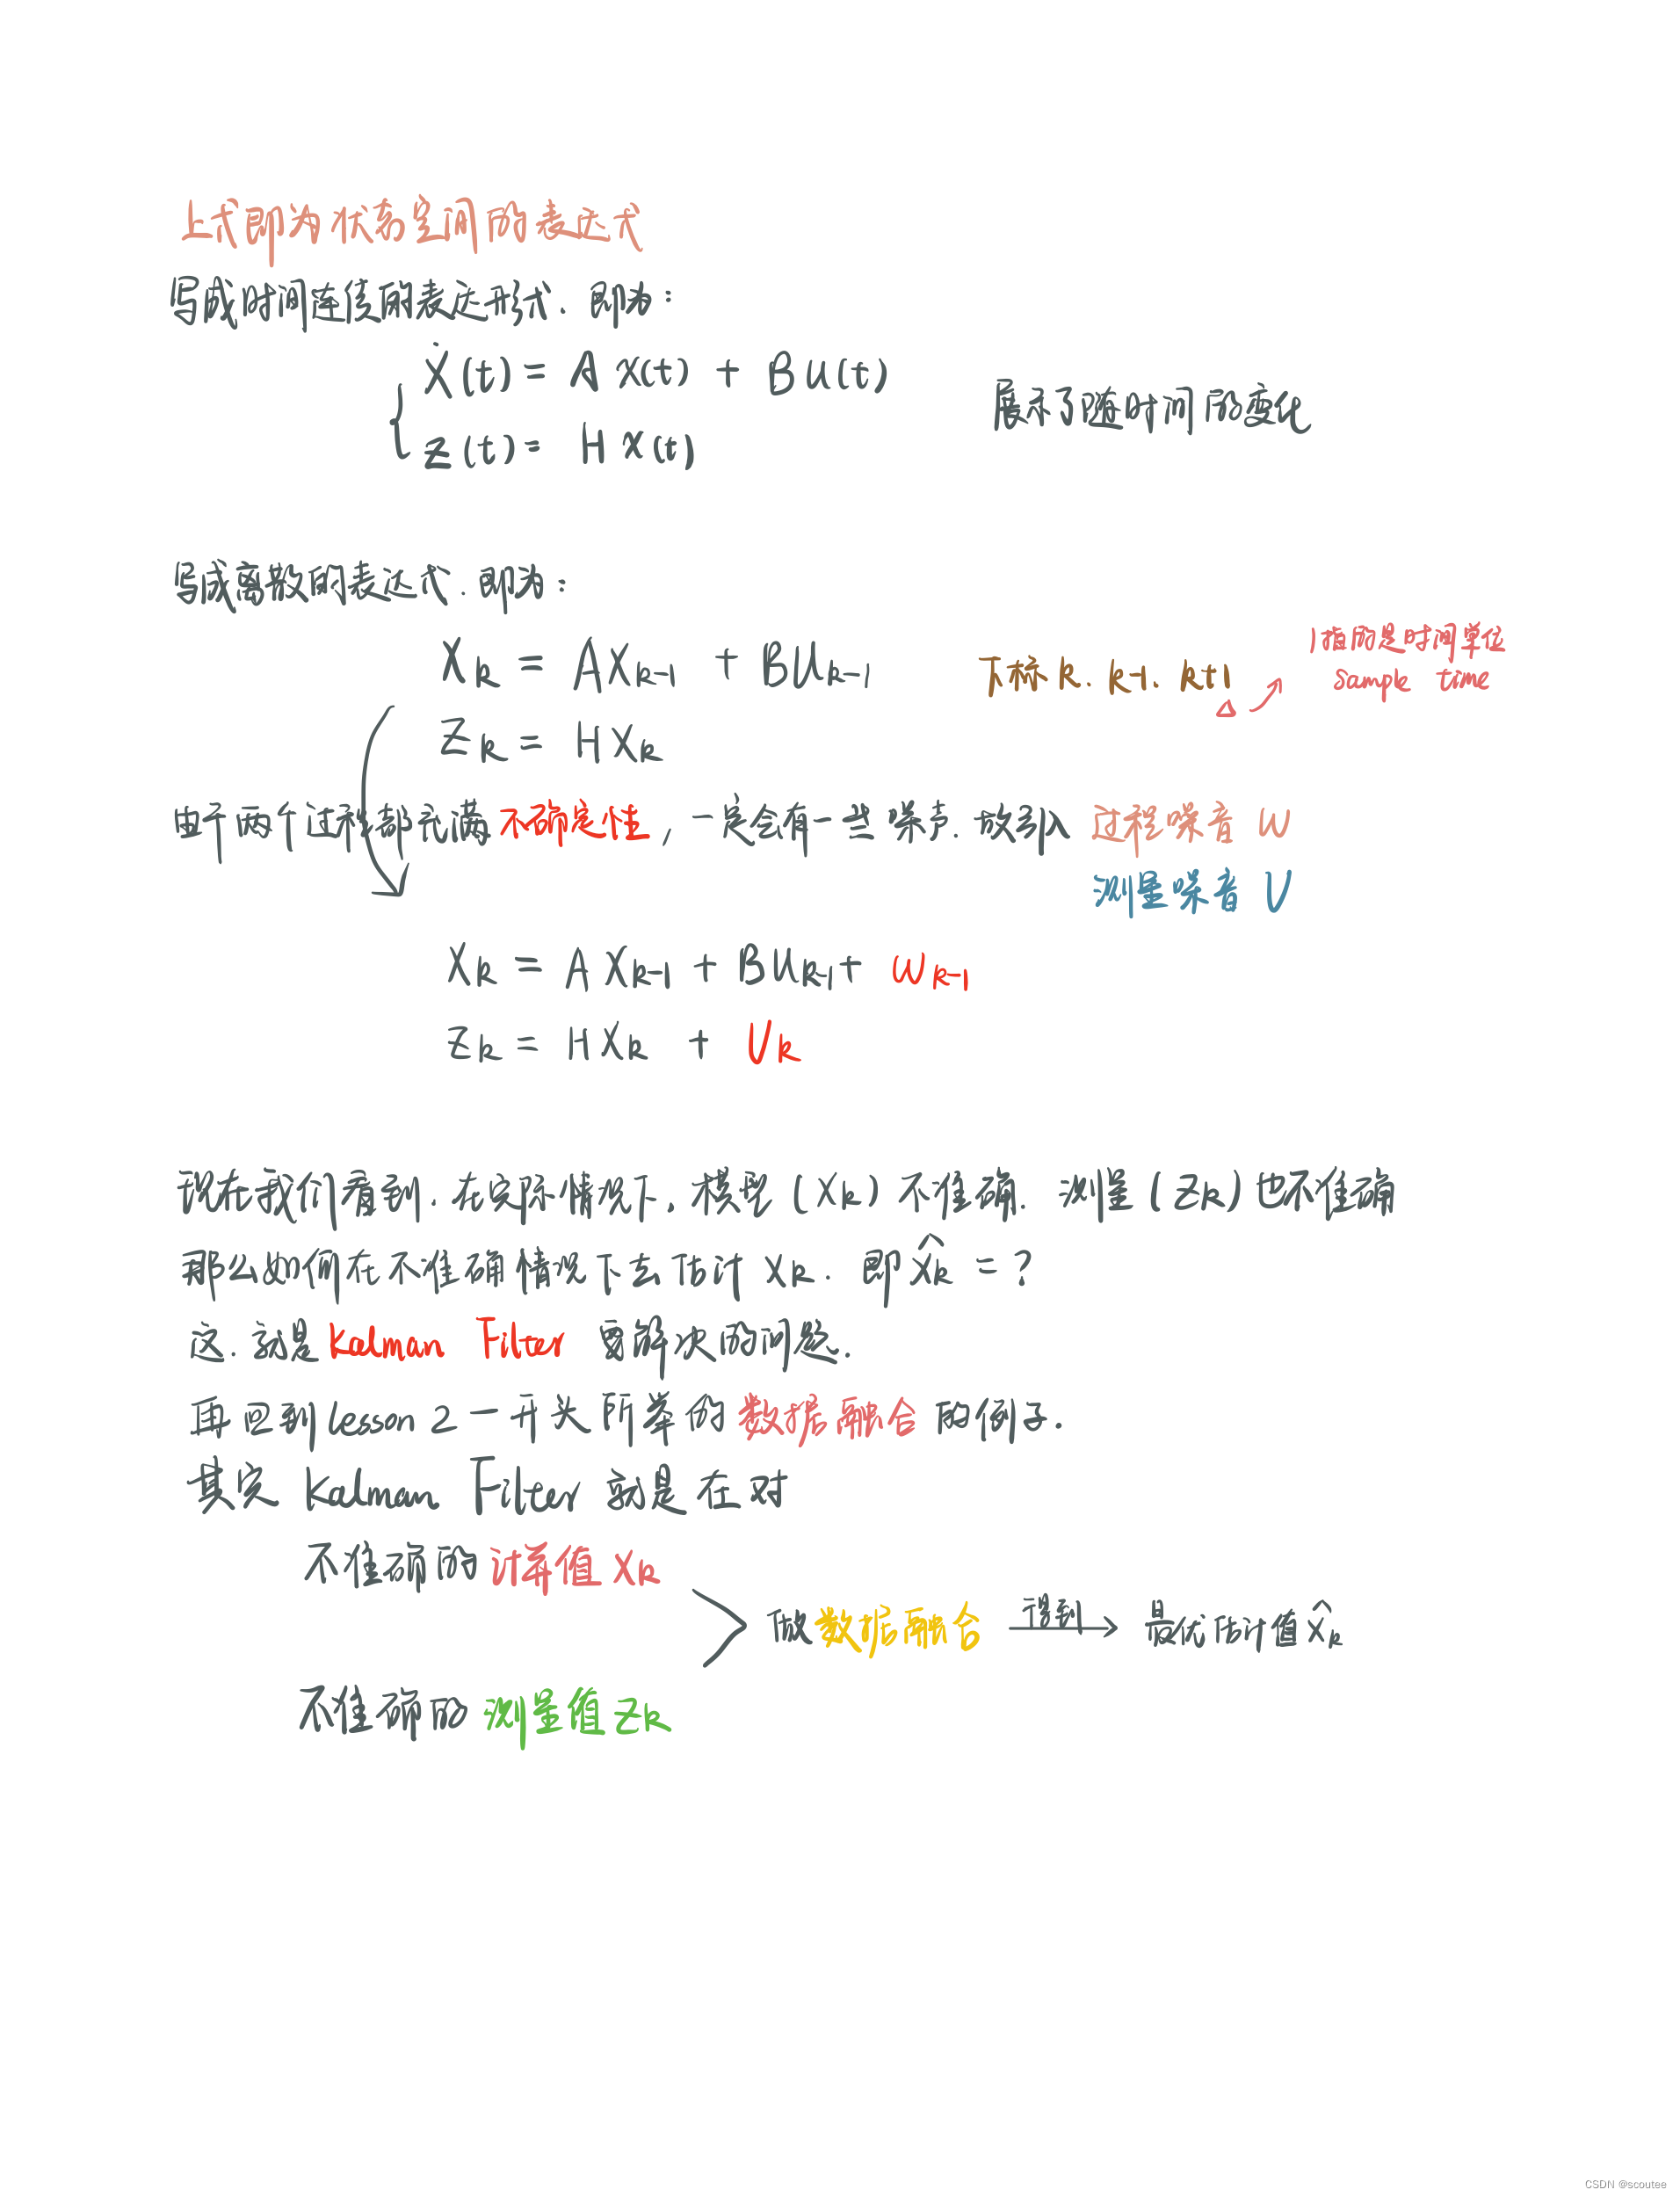 上式即为状态空间的表达式
写成时间连续的表达形式. 即为:
Ẋ(t) = A X(t) + B U(t)
Z(t) = H X(t)
展示了随时间的变化
写成离散的表达式. 即为:
X_k = A X_{k-1} + B U_{k-1}
下标 k. k-1. k+1
1指的是时间单位
Sample time
Z_k = H X_k
由于两个过程都充满不确定性, 一定会有一些噪声. 故引入 过程噪音 W
测量噪音 V
X_k = A X_{k-1} + B U_{k-1} + W_{k-1}
Z_k = H X_k + V_k
现在我们看到. 在实际情况下, 模型 (X_k) 不准确. 测量 (Z_k) 也不准确
那么如何在不准确情况下去估计 X_k. 即 X̂_k = ?
这. 就是 Kalman Filter 要解决的问题.
再回到 lesson 2 一开头所举的数据融合的例子.
其实 Kalman Filter 就是在对
不准确的计算值 X_k
做数据融合 得到→ 最优估计值 X̂_k
不准确的测量值 Z_k
CSDN @scoutee